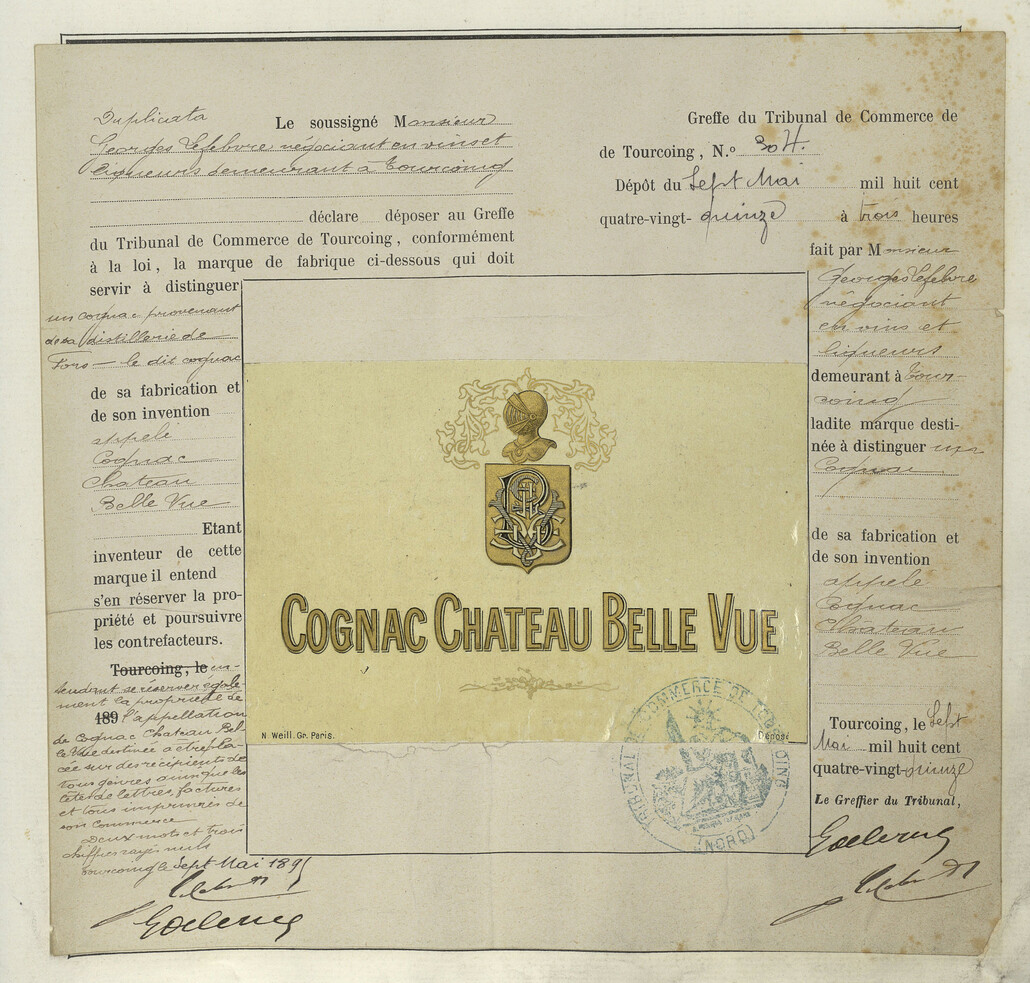 Duplicata
Le soussigné Monsieur
Georges Lefebvre négociant en vins et
liqueurs demeurant à Tourcoing
déclare déposer au Greffe
du Tribunal de Commerce de Tourcoing, conformément
à la loi, la marque de fabrique ci-dessous qui doit
servir à distinguer
un cognac provenant
de sa distillerie de
Fors — le dit cognac
de sa fabrication et
de son invention
appelé
Cognac
Chateau
Belle Vue
Etant
inventeur de cette
marque il entend
s'en réserver la pro-
priété et poursuivre
les contrefacteurs.
Tourcoing, le en-
tendant se réserver égale-
ment la propriété de
189 l'appellation
de Cognac Chateau Bel-
le Vue destinée à être pla-
cée sur des récipients de
tous genres ainsi que les
têtes de lettres, factures
et tous imprimés de
son commerce
Deux mots et trois
chiffres rayés nuls
Tourcoing le Sept Mai 1895
Greffe du Tribunal de Commerce de
de Tourcoing, N.º 304.
Dépôt du Sept Mai mil huit cent
quatre-vingt-quinze à trois heures
fait par Monsieur
Georges Lefebvre
négociant
en vins et
liqueurs
demeurant à Tour-
coing
ladite marque desti-
née à distinguer un
Cognac
de sa fabrication et
de son invention
appelé
Cognac
Chateau
Belle Vue
Tourcoing, le Sept
Mai mil huit cent
quatre-vingt-quinze
Le Greffier du Tribunal,
COGNAC CHATEAU BELLE VUE
N. Weill. Gr. Paris.
Déposé
TRIBUNAL DE COMMERCE DE TOURCOING
(NORD)